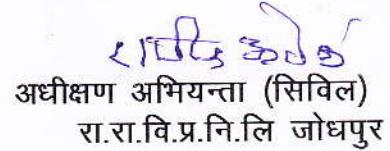 अधीक्षण अभियन्ता (सिविल)
रा.रा.वि.प्र.नि.लि जोधपुर